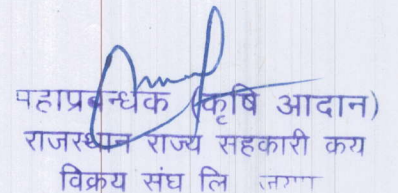 महाप्रबन्धक (कृषि आदान)
राजस्थान राज्य सहकारी कय
विक्रय संघ लि